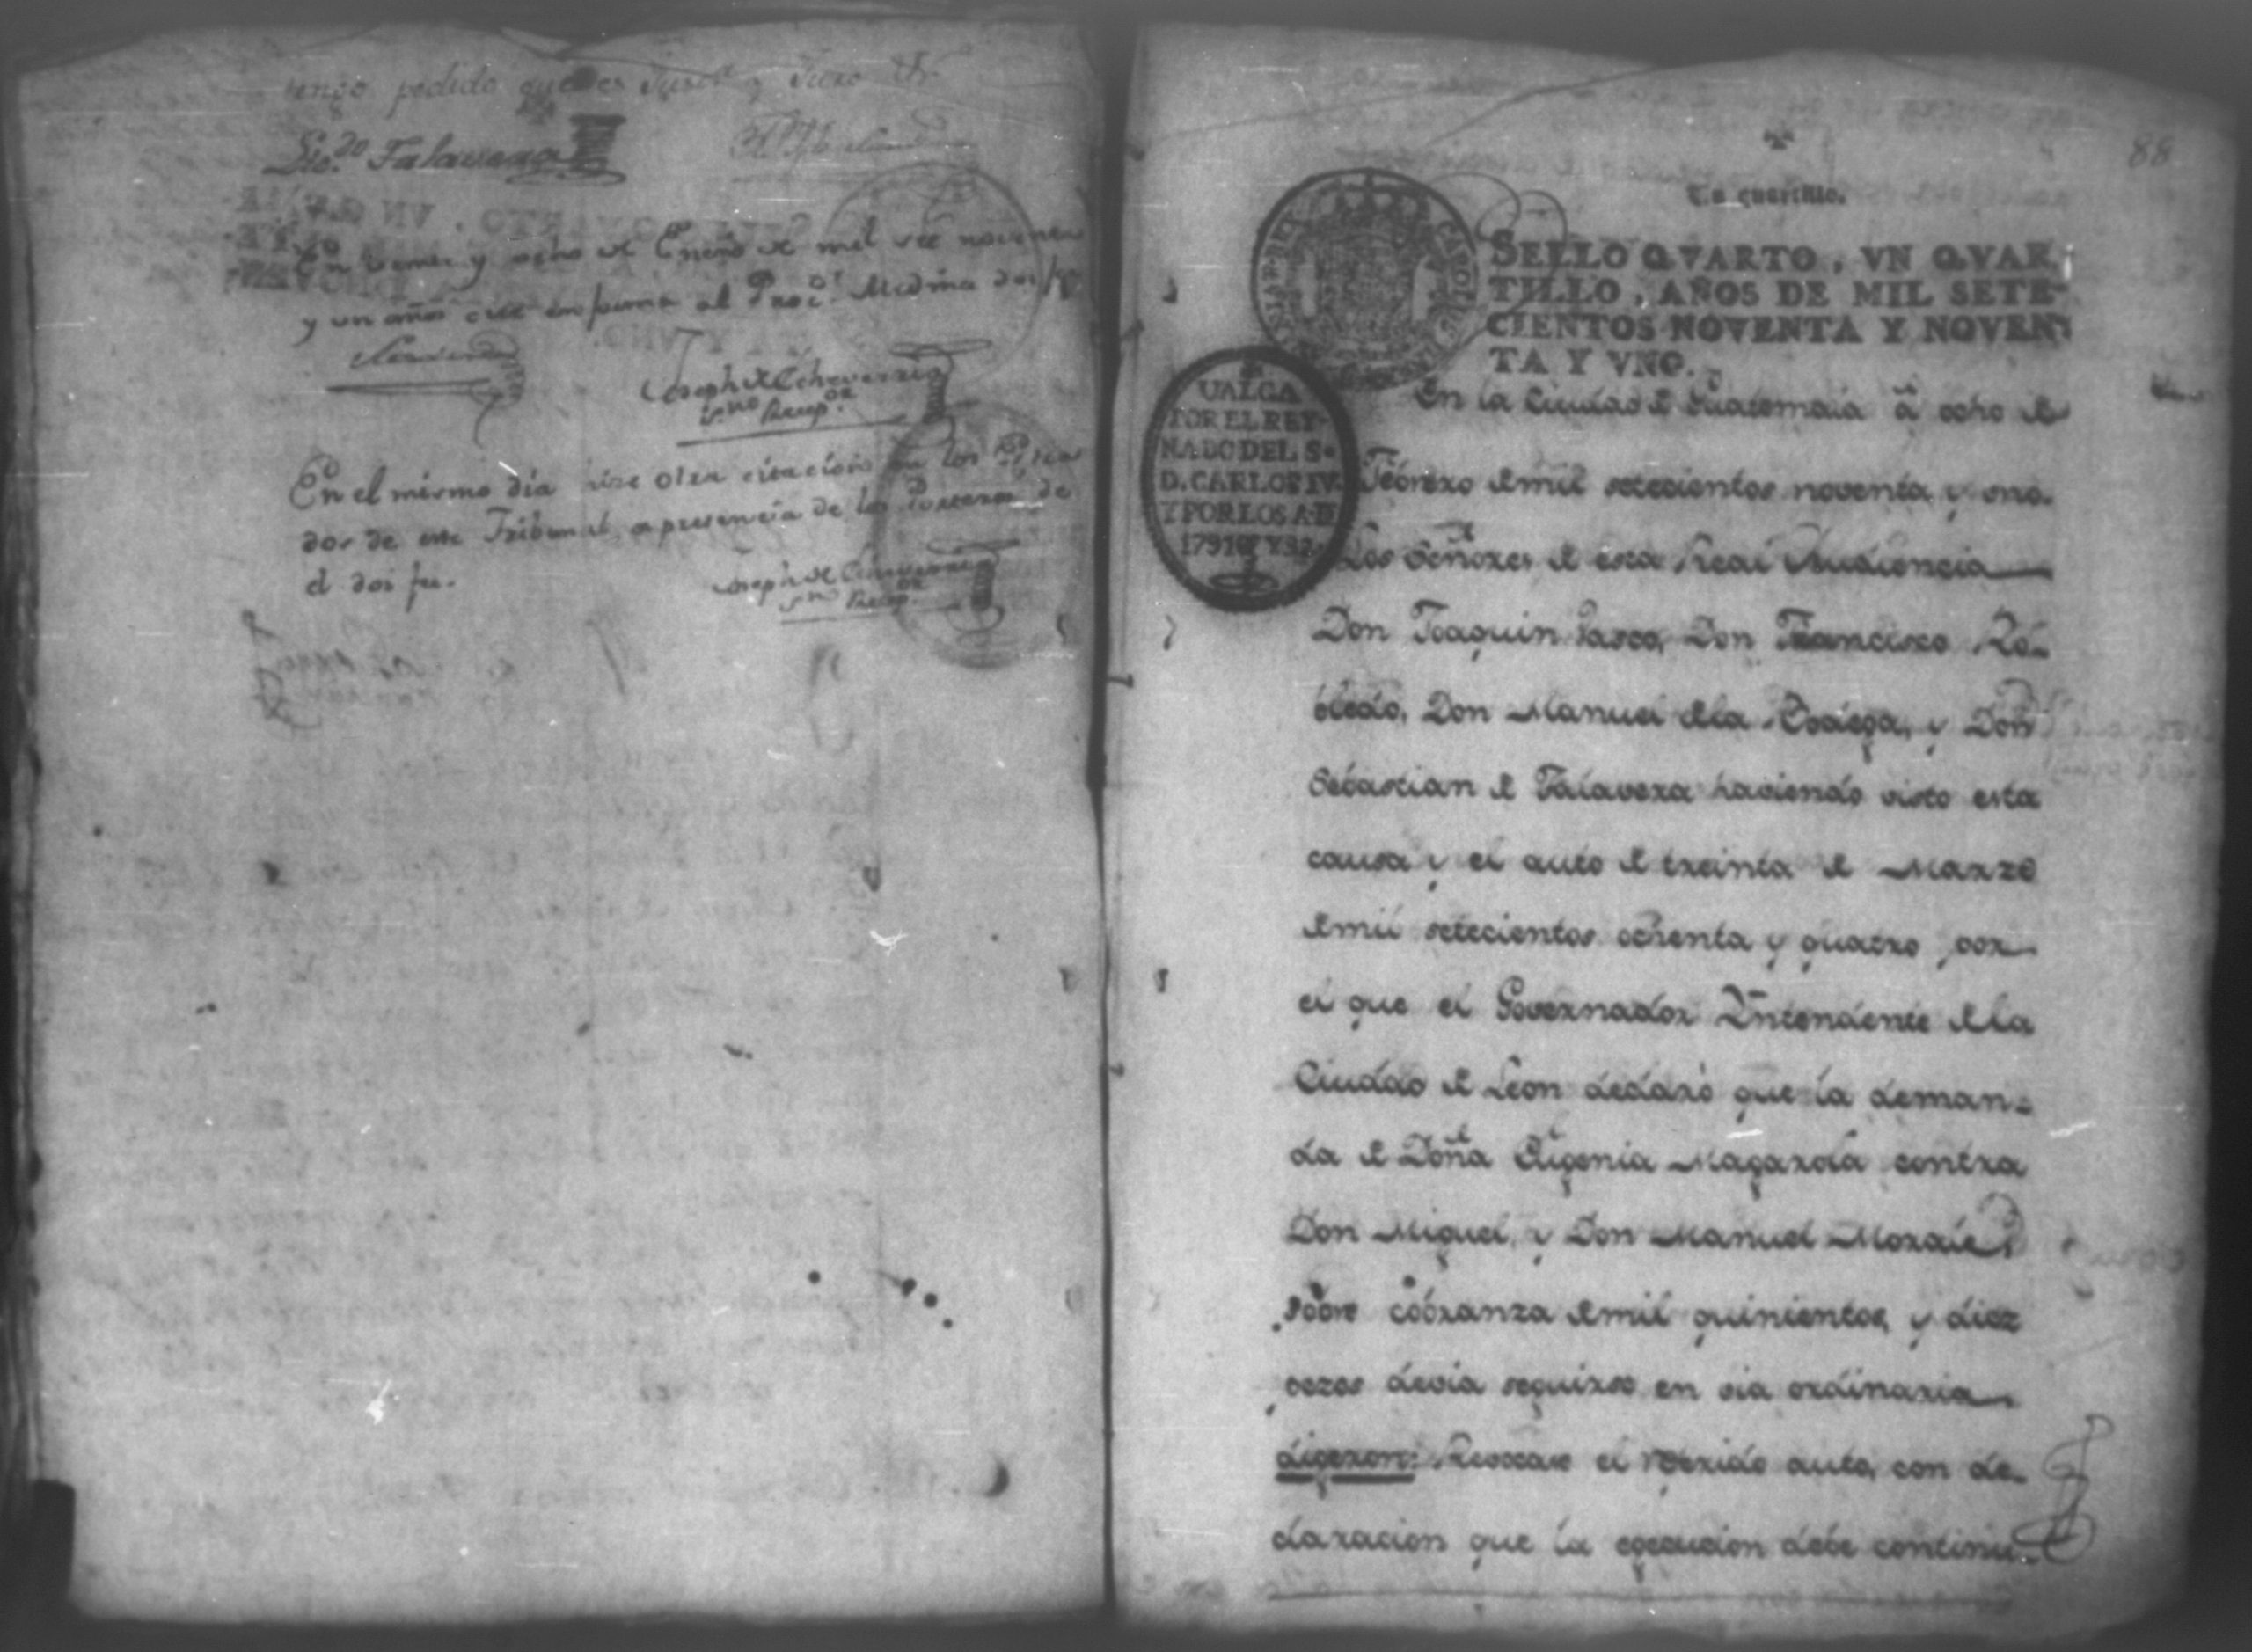 tengo pedido que es Just.a y Juro &.
Lic.do Talavera
En veinte y ocho de Enero de mil set.s noventa
y un años cite en forma al Proc.r Medina doi fee
Joseph de Echeverria
S.no Recep.or
En el mismo dia hize otra citacion en los Estra
dos de este Tribunal, a presencia de los Porteros de
el doi fee.
Joseph de Echeverria
S.no Recep.or
88
Un quartillo.
SELLO QVARTO, VN QVAR
TILLO, AÑOS DE MIL SETE-
CIENTOS NOVENTA Y NOVEN
TA Y VNO.
UALGA
POR EL REY-
NADO DEL S.
D. CARLOS IV.
Y POR LOS A.D
1791 Y 92
En la Ciudad de Guatemala â ocho de
Febrero de mil setecientos noventa y uno.
Los Señores de esta Real Audiencia
Don Joaquin Vasco, Don Francisco Ro-
bledo, Don Manuel de la Bodega, y Don
Sebastian de Talavera haviendo visto esta
causa y el auto de treinta de Marzo
de mil setecientos ochenta y quatro por
el que el Governador Yntendente de la
Ciudad de Leon declarò que la deman-
da de Doña Eigenia Magarola contra
Don Miguel, y Don Manuel Morales
sobre cobranza de mil quinientos, y diez
pezos devia seguirse en via ordinaria
digeron: Revocase el referido auto, con de-
claracion que la egecucion debe continu-